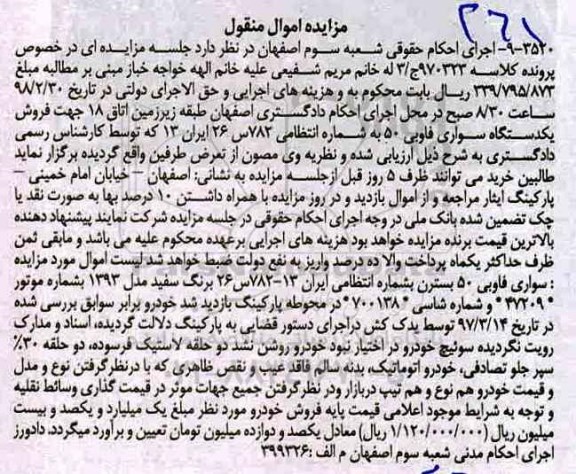 ۳۶۱
مزایده اموال منقول
۹-۳۵۲۰- اجرای احکام حقوقی شعبه سوم اصفهان در نظر دارد جلسه مزایده ای در خصوص
پرونده کلاسه ۹۷۰۳۲۳ج/۳ له خانم مریم شفیعی علیه خانم الهه خواجه خباز مبنی بر مطالبه مبلغ
۳۳۹/۷۹۵/۸۷۳ ریال بابت محکوم به و هزینه های اجرایی و حق الاجرای دولتی در تاریخ ۹۸/۲/۳۰
ساعت ۸/۳۰ صبح در محل اجرای احکام دادگستری اصفهان طبقه زیرزمین اتاق ۱۸ جهت فروش
یکدستگاه سواری فاوبی ۵۰ به شماره انتظامی ۷۸۲س ۲۶ ایران ۱۳ که توسط کارشناس رسمی
دادگستری به شرح ذیل ارزیابی شده و نظریه وی مصون از تعرض طرفین واقع گردیده برگزار نماید
طالبین خرید می توانند ظرف ۵ روز قبل ازجلسه مزایده به نشانی: اصفهان – خیابان امام خمینی –
پارکینگ ایثار مراجعه و از اموال بازدید و در روز مزایده با همراه داشتن ۱۰ درصد بها به صورت نقد یا
چک تضمین شده بانک ملی در وجه اجرای احکام حقوقی در جلسه مزایده شرکت نمایند پیشنهاد دهنده
بالاترین قیمت برنده مزایده خواهد بود هزینه های اجرایی برعهده محکوم علیه می باشد و مابقی ثمن
ظرف حداکثر یکماه پرداخت والا ده درصد واریز به نفع دولت ضبط خواهد شد لیست اموال مورد مزایده
: سواری فاوبی ۵۰ بسترن بشماره انتظامی ایران ۱۳-۷۸۲س۲۶ برنگ سفید مدل ۱۳۹۳ بشماره موتور
* ۴۷۲۰۹* و شماره شاسی * ۷۰۰۱۳۸* در محوطه پارکینگ بازدید شد خودرو برابر سوابق بررسی شده
در تاریخ ۹۷/۳/۱۴ توسط یدک کش دراجرای دستور قضایی به پارکینگ دلالت گردیده، اسناد و مدارک
رویت نگردیده سوئیچ خودرو در اختیار نبود خودرو روشن نشد دو حلقه لاستیک فرسوده، دو حلقه ۳۰٪
سپر جلو تصادفی، خودرو اتوماتیک، بدنه سالم فاقد عیب و نقص ظاهری که با درنظرگرفتن نوع و مدل
و قیمت خودرو هم نوع و هم تیپ دربازار ودر نظرگرفتن جمیع جهات موثر در قیمت گذاری وسائط نقلیه
و توجه به شرایط موجود اعلامی قیمت پایه فروش خودرو مورد نظر مبلغ یک میلیارد و یکصد و بیست
میلیون ریال (۱/۱۲۰/۰۰۰/۰۰۰ ریال) معادل یکصد و دوازده میلیون تومان تعیین و برآورد میگردد. دادورز
اجرای احکام مدنی شعبه سوم اصفهان م الف :۳۹۹۳۲۶